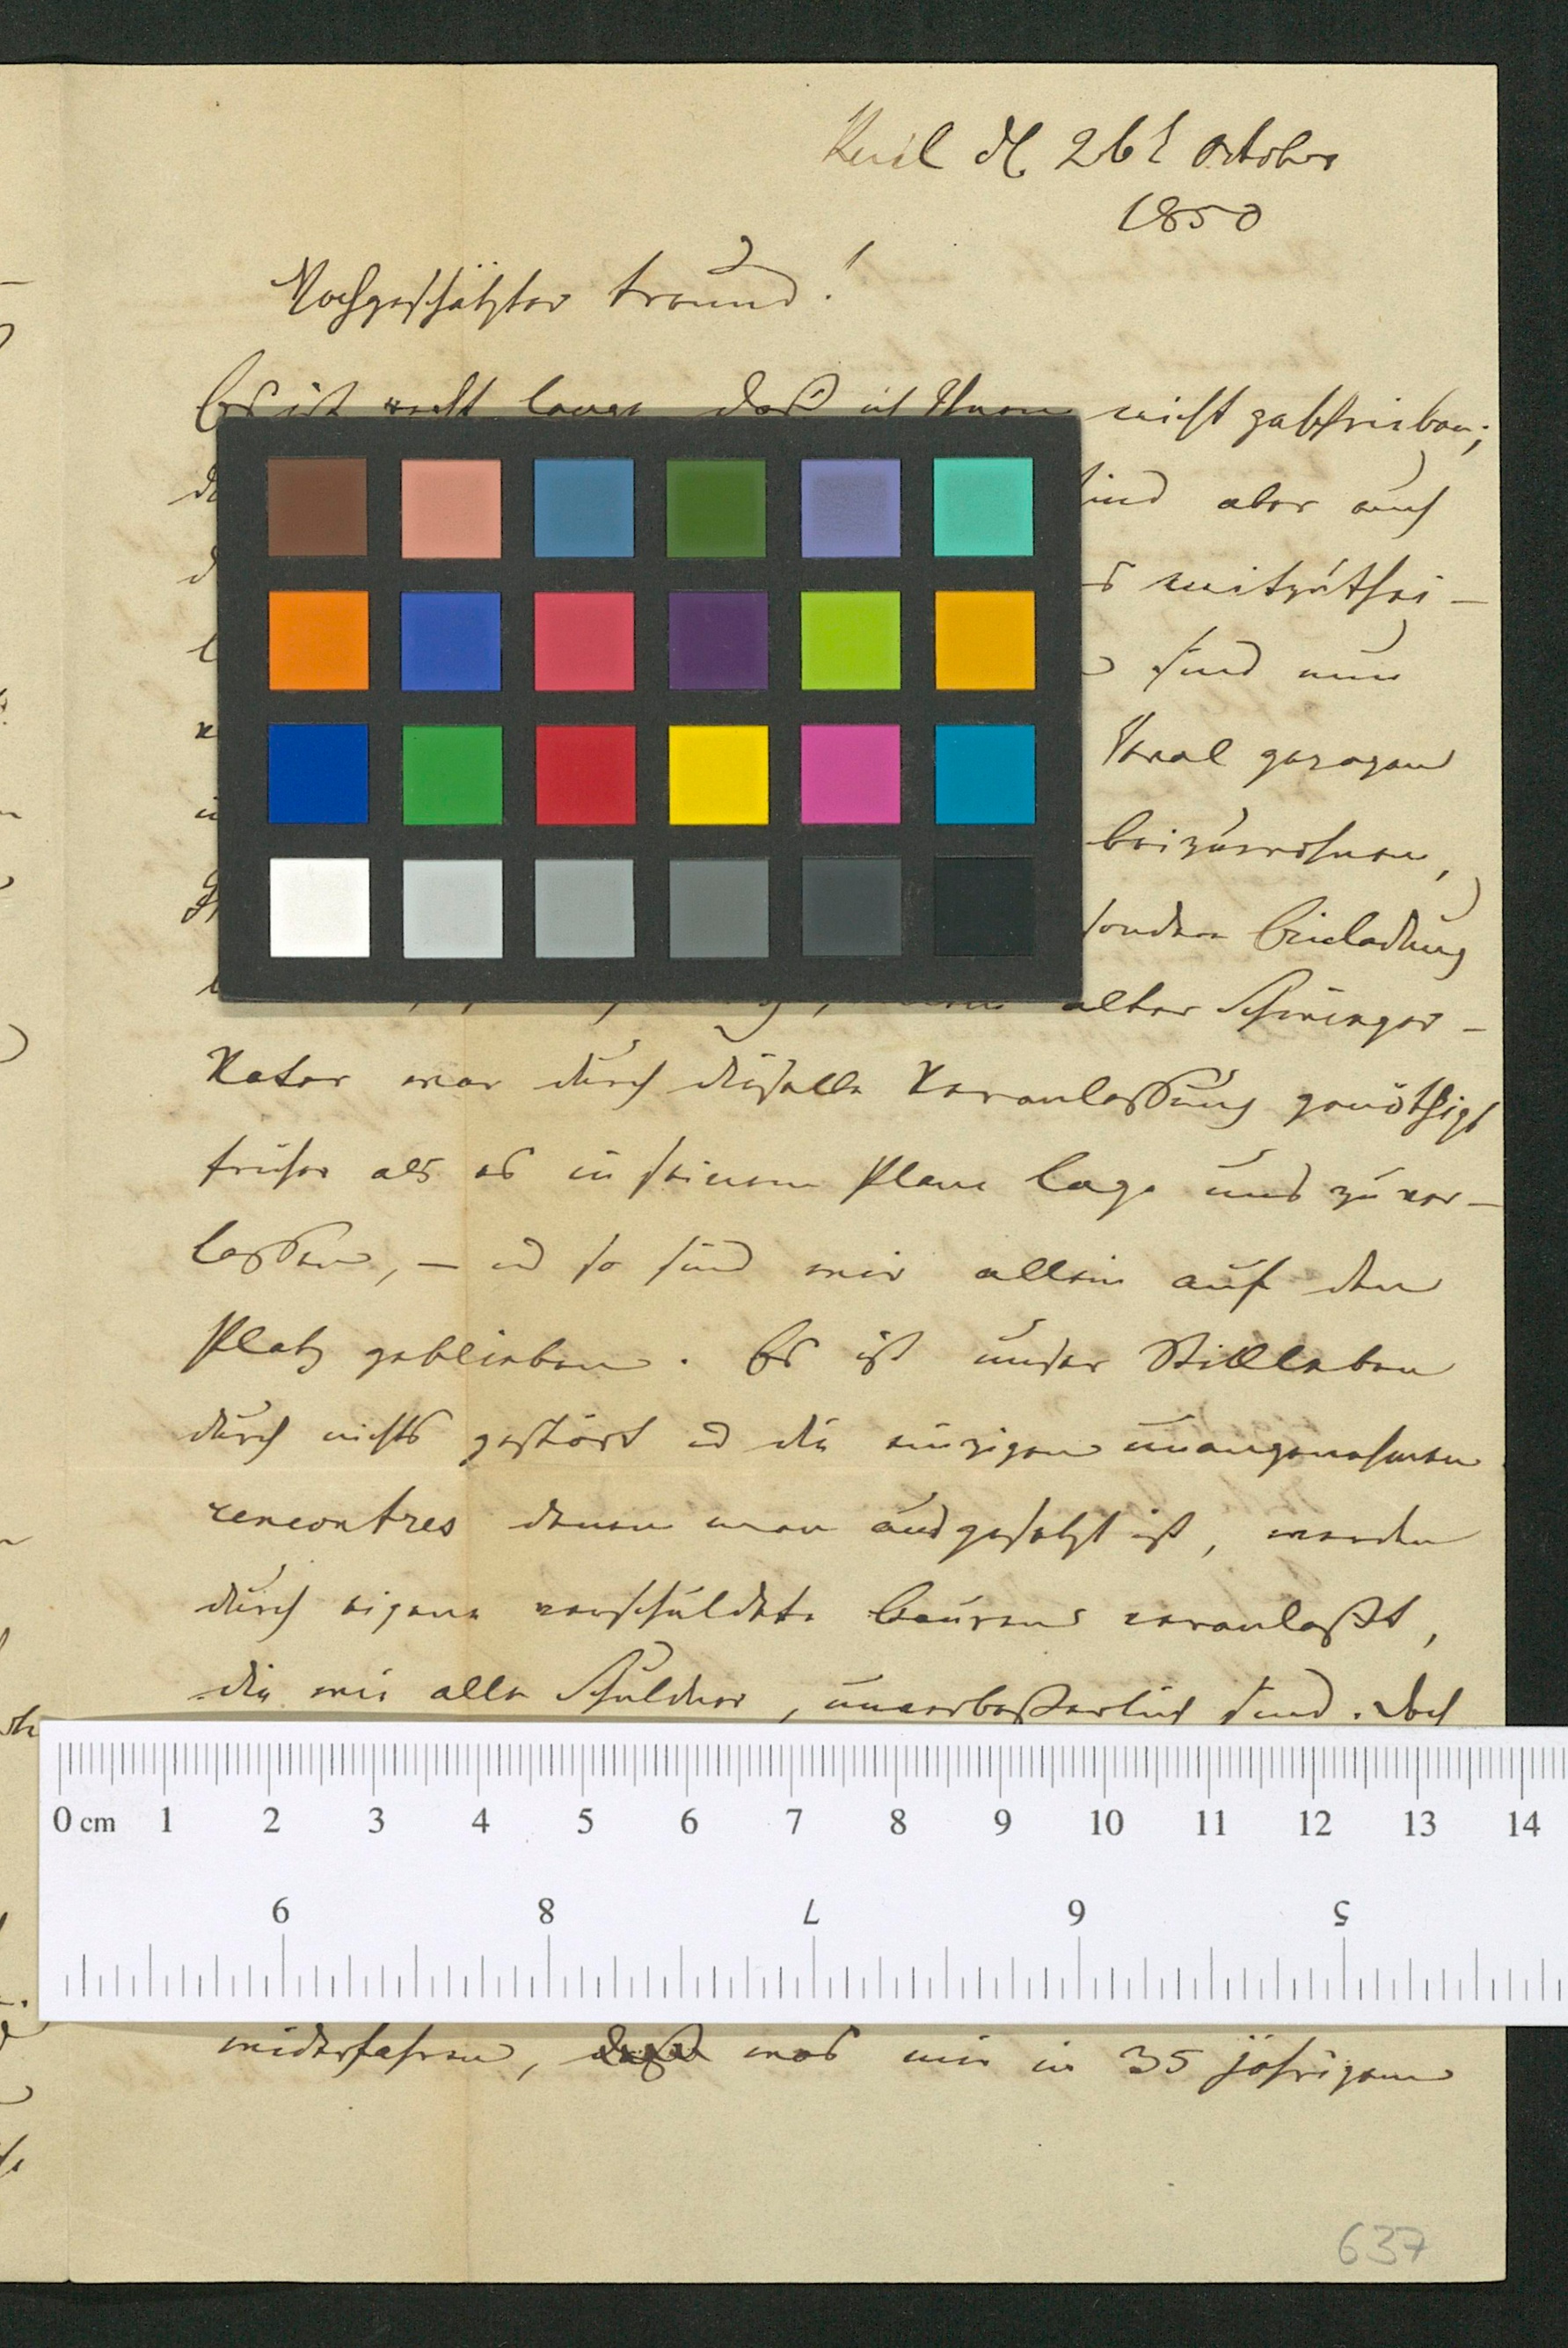 d 26t October
1850
Hochgeschätzter Freund!
Es ist recht lange daß ich Ihnen nicht geschrieben;
sind aber auch
mitzuthei-
sind nun
Thal gezogen
beizuwohnen,
Einladung
alter Schwieger-
Vater war durch dieselbe Veranlassung genöthigt
früher als es in seinem Plane lage uns zu ver-
lassen, – und so sind wir allein auf dem
Platz geblieben. Es ist unser Stillleben
durch nichts gestört und die einzigen unangenehmen
rencontres denen man ausgesetzt ist, werden
durch eigene verschuldete Bauren veranlaßt,
die wie alle Schuldner, unverbeßerlich sind. Doch
0 cm 1 2 3 4 5 6 7 8 9 10 11 12 13 14
9 8 7 6 5
widerfahren, was mir in 35 jährigem
637